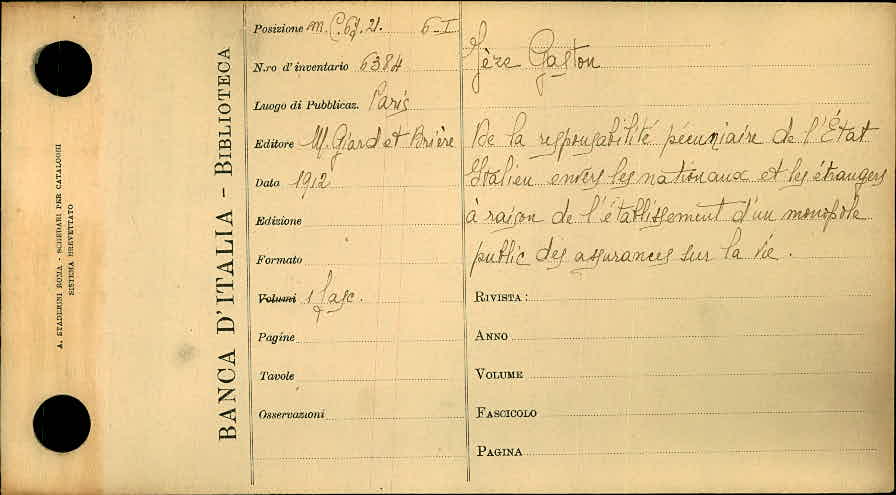 A. STADERINI ROMA - SCHEDARI PER CATALOGHI
SISTEMA BREVETTATO
BANCA D'ITALIA - BIBLIOTECA
Posizione m. C. 67. 21. 6-I
N.ro d'inventario 6384
Luogo di Pubblicaz. Paris
Editore M. Giard et Brière
Data 1912
Edizione
Formato
Volumi 1 fasc.
Pagine
Tavole
Osservazioni
Jèze Gaston
De la responsabilité pécuniaire de l'État
Italien envers les nationaux et les étrangers
à raison de l'établissement d'un monopole
public des assurances sur la vie.
RIVISTA:
ANNO
VOLUME
FASCICOLO
PAGINA